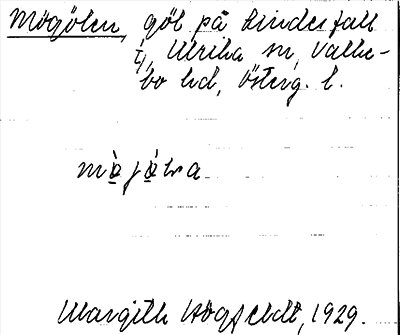 Mögölen, göl på Lindesfall
⅟₁, Ulrika sn, Valke-
bo hd, Österg. l.
Margith Högfeldt, 1929.